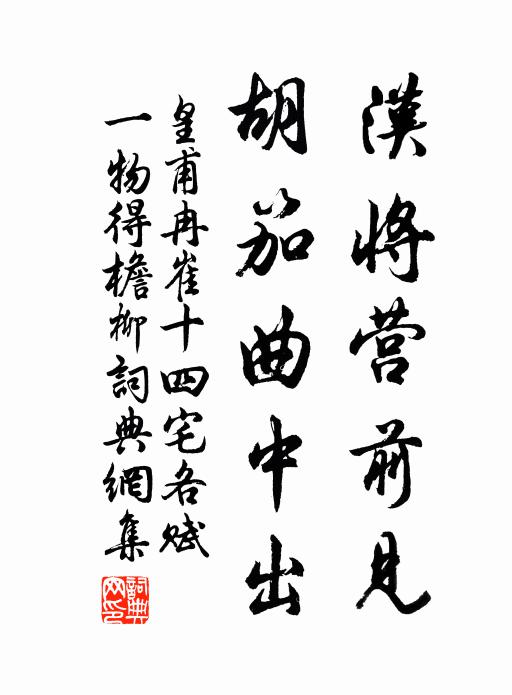 漢將營前見
胡笳曲中出
皇甫冉崔十四宅各賦
一物得檐柳詞典網集
詞典網印